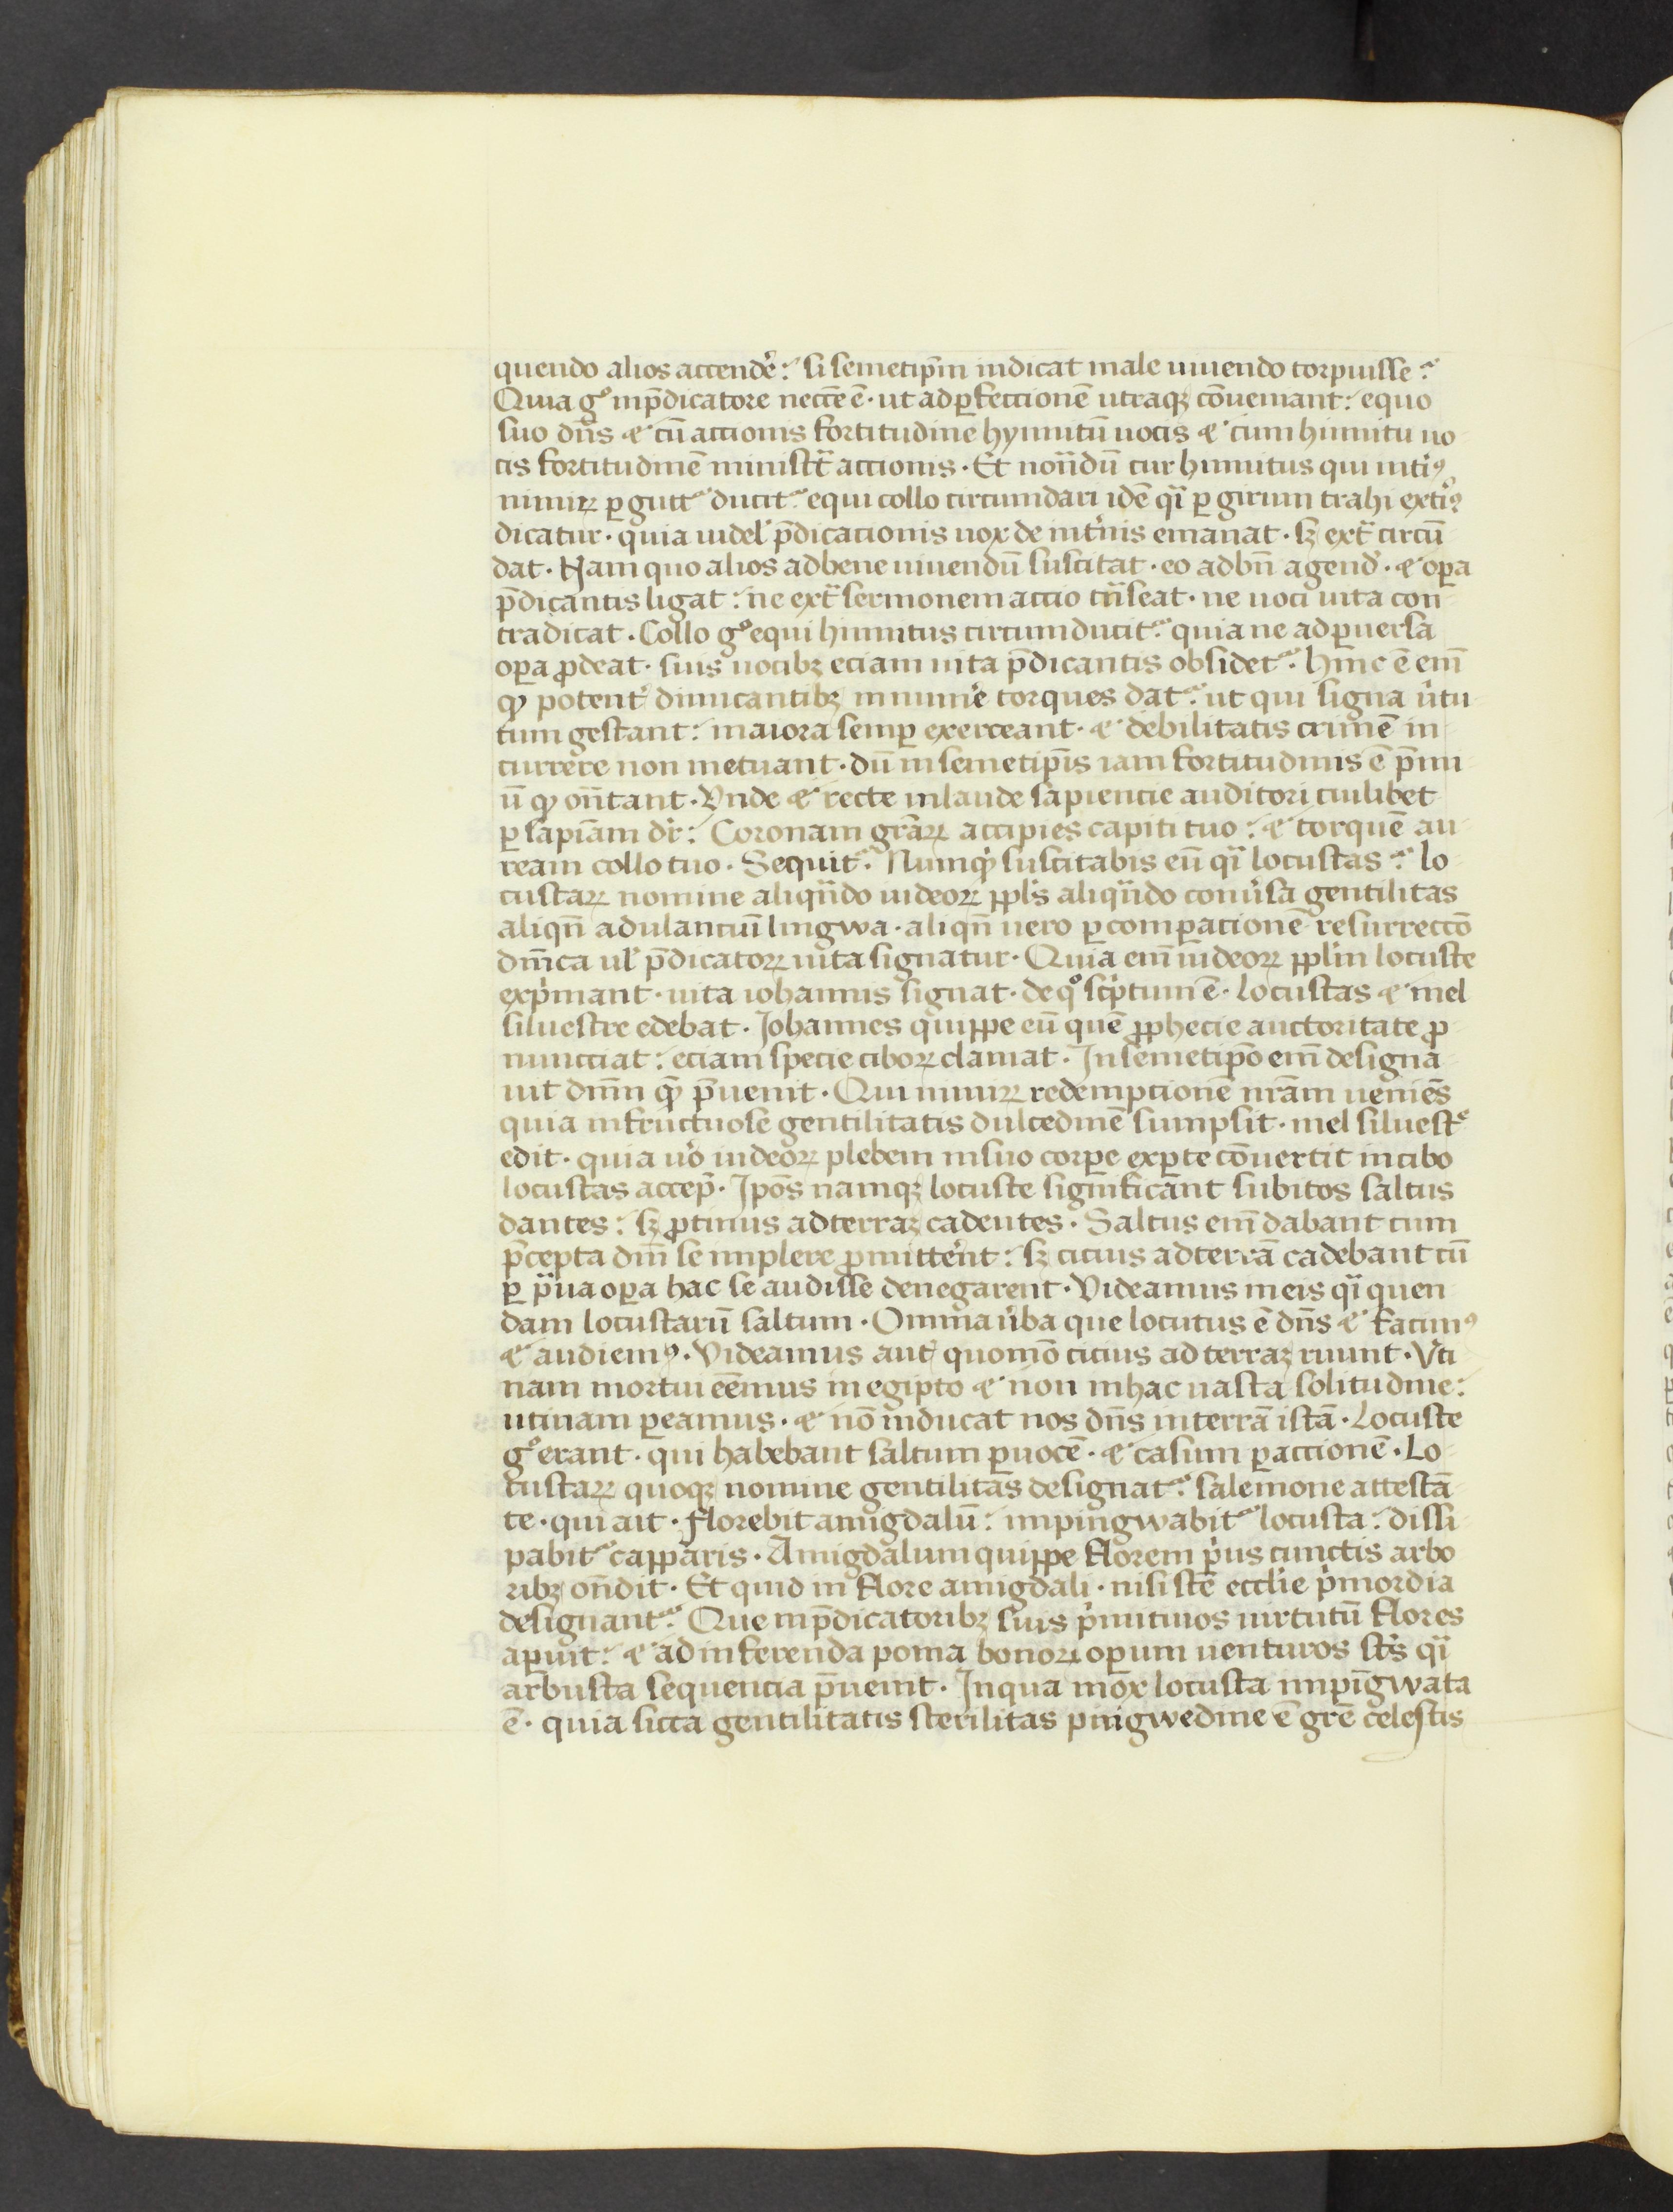 quendo alios accendẽ: si semetip̃m indicat male uiuendo torpuisse:
Quia gͦ inp̃dicatore necc̃e ẽ· ut ad ꝑfeccionẽ utraqꝫ cõueniant: equo
suo dñs & cũ accionis fortitudine hynnitũ uocis & cum hinnitu uo
cis fortitudinẽ minist̃t accionis· Et noñdũ cur hinnitus qui intiꝯ
nimirꝝ ꝑ gutt᷑ ducit᷑ equi collo circumdari idẽ qͣi ꝑ girum trahi extiꝯ
dicatur· quia uidel᷑ p̃dicacionis uox de int̾nis emanat· sꝫ ext̃ circũ
dat· Nam quo alios ad bene uiuendũ suscitat· eo ad bñ agend̾· & oꝑa
p̃dicantis ligat: ne ext̃ sermonem accio tͣnseat· ne uoci uita con
tradicat· Collo gͦ equi hinnitus circumducit᷑· quia ne ad ꝑuersa
oꝑa ꝓdeat· suis uocibꝫ eciam uita p̃dicantis obsidet᷑· Hinc ẽ eni᷑
ꝙ potent̾ dimicantibꝫ in mun̾e torques dat᷑· ut qui signa u̾tu
tum gestant: maiora semꝑ exerceant· & debilitatis crimẽ in
currere non metuant· dũ in semetip̃is iam fortitudinis ẽ p̃mi
ũ ꝙ oñtant· Vnde & recte in laude sapiencie auditori cuilibet
ꝑ sapiãm dr̃: Coronam gr̃arꝝ accipies capiti tuo: & torquẽ au
ream collo tuo· Sequit᷑· Nunqͥd suscitabis eũ qͣi locustas: lo
custarꝝ nomine aliqͣndo iudeorꝝ ppl̾s aliqͣndo conu̾sa gentilitas
aliqñ adulanciũ lingwa· aliqñ uero ꝑ comꝑacionẽ resurreccõ
dñica ul᷑ p̃dicatorꝝ uita signatur· Quia eni᷑ iudeorꝝ ppl̾m locuste
expͥmant· uita iohannis signat· de qͦ scpͥtum ẽ· locustas & mel
siluestre edebat· Johannes quippe eũ quẽ ꝓphecie auctoritate ꝓ
nuncciat: eciam specie ciborꝝ clamat· In semetip̃o eni᷑ designa
uit dñm quẽ p̃uenit· Qui nimirꝝ redempcionẽ nr̃am ueniẽs
quia infructuose gentilitatis dulcedinẽ sumpsit· mel siluest̾e
edit· quia u̾o iudeorꝝ plebem in suo corꝑe ex ꝑte cõuertit in cibo
locustas accep̾· Ip̃os namqꝫ locuste significant subitos saltus
dantes: sꝫ ꝓtinus ad terraꝫ cadentes· Saltus eni᷑ dabant cum
p̃cepta dñi se implere ꝓmitte̾nt: sꝫ cicius ad terrã cadebant cũ
ꝑ pͣua oꝑa hac se audisse denegarent· Videamus in eis qͣi quen
dam locustarũ saltum· Omnia u̾ba que locutus ẽ dñs & faciemꝯ
& audiemꝯ· Videamus aut̾ quomõ cicius ad terraꝫ ruunt· Vti
nam mortui eẽmus in egipto & non in hac uasta solitudine:
utinam ꝑeamus· & nõ inducat nos dñs in terrã istã· Locuste
gͦ erant· qui habebant saltum ꝑ uocẽ· & casum ꝑ accionẽ· Lo
custarꝝ quoqꝫ nomine gentilitas designat᷑· salemone attestã
te· qui ait· Florebit amigdalũ: impingwabit᷑ locusta: dissi
pabit᷑ capparis· Amigdalum quippe florem pͥus cunctis arbo
ribꝫ oñdit· Et quid in flore amigdali· nisi stẽ eccl̾ie pͥmordia
designant᷑· Que in p̃dicatoribꝫ suis pͥmitiuos uirtutũ flores
aꝑuit: & ad inferenda poma bonorꝝ oꝑum uenturos st̾s qͣi
arbusta sequencia p̃uenit· In qua mox locusta impĩgwata
ẽ· quia sicca gentilitatis sterilitas pingwedine ẽ grẽ celestis